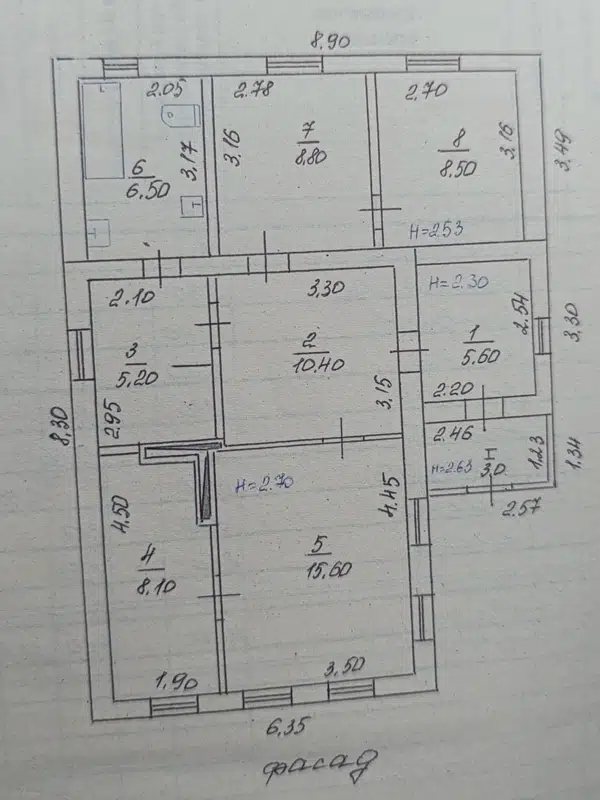 8.90
2.05
2.78
2.70
6
6.50
3,17
3,16
7
8.80
8
8.50
3,16
3,49
H=253
2.10
3,30
H=2.30
2.54
3,30
3
5.20
2
10.40
1
5.60
2.95
3,15
2.20
8,30
2.46
I
3,0
1.23
1.34
H=2.63
2.57
4.50
H=2.70
4.45
4
8.10
5
15.60
1.90
3.50
6.35
фасад